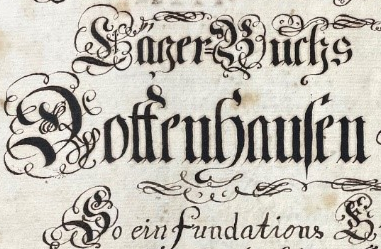 Läger=Buchs
Dottenhauſen
So ein fundations